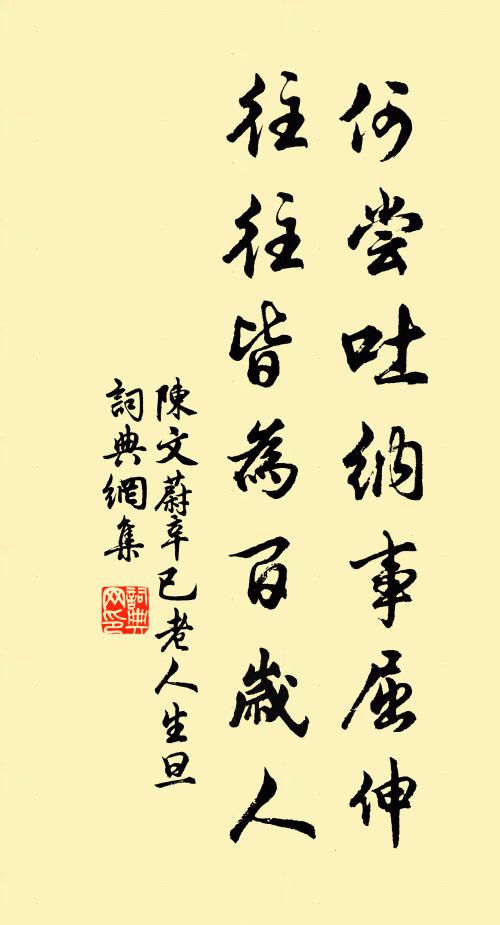 何嘗吐納事屈伸
往往皆為百歲人
陳文蔚辛巳老人生旦
詞典網集
詞典
网印